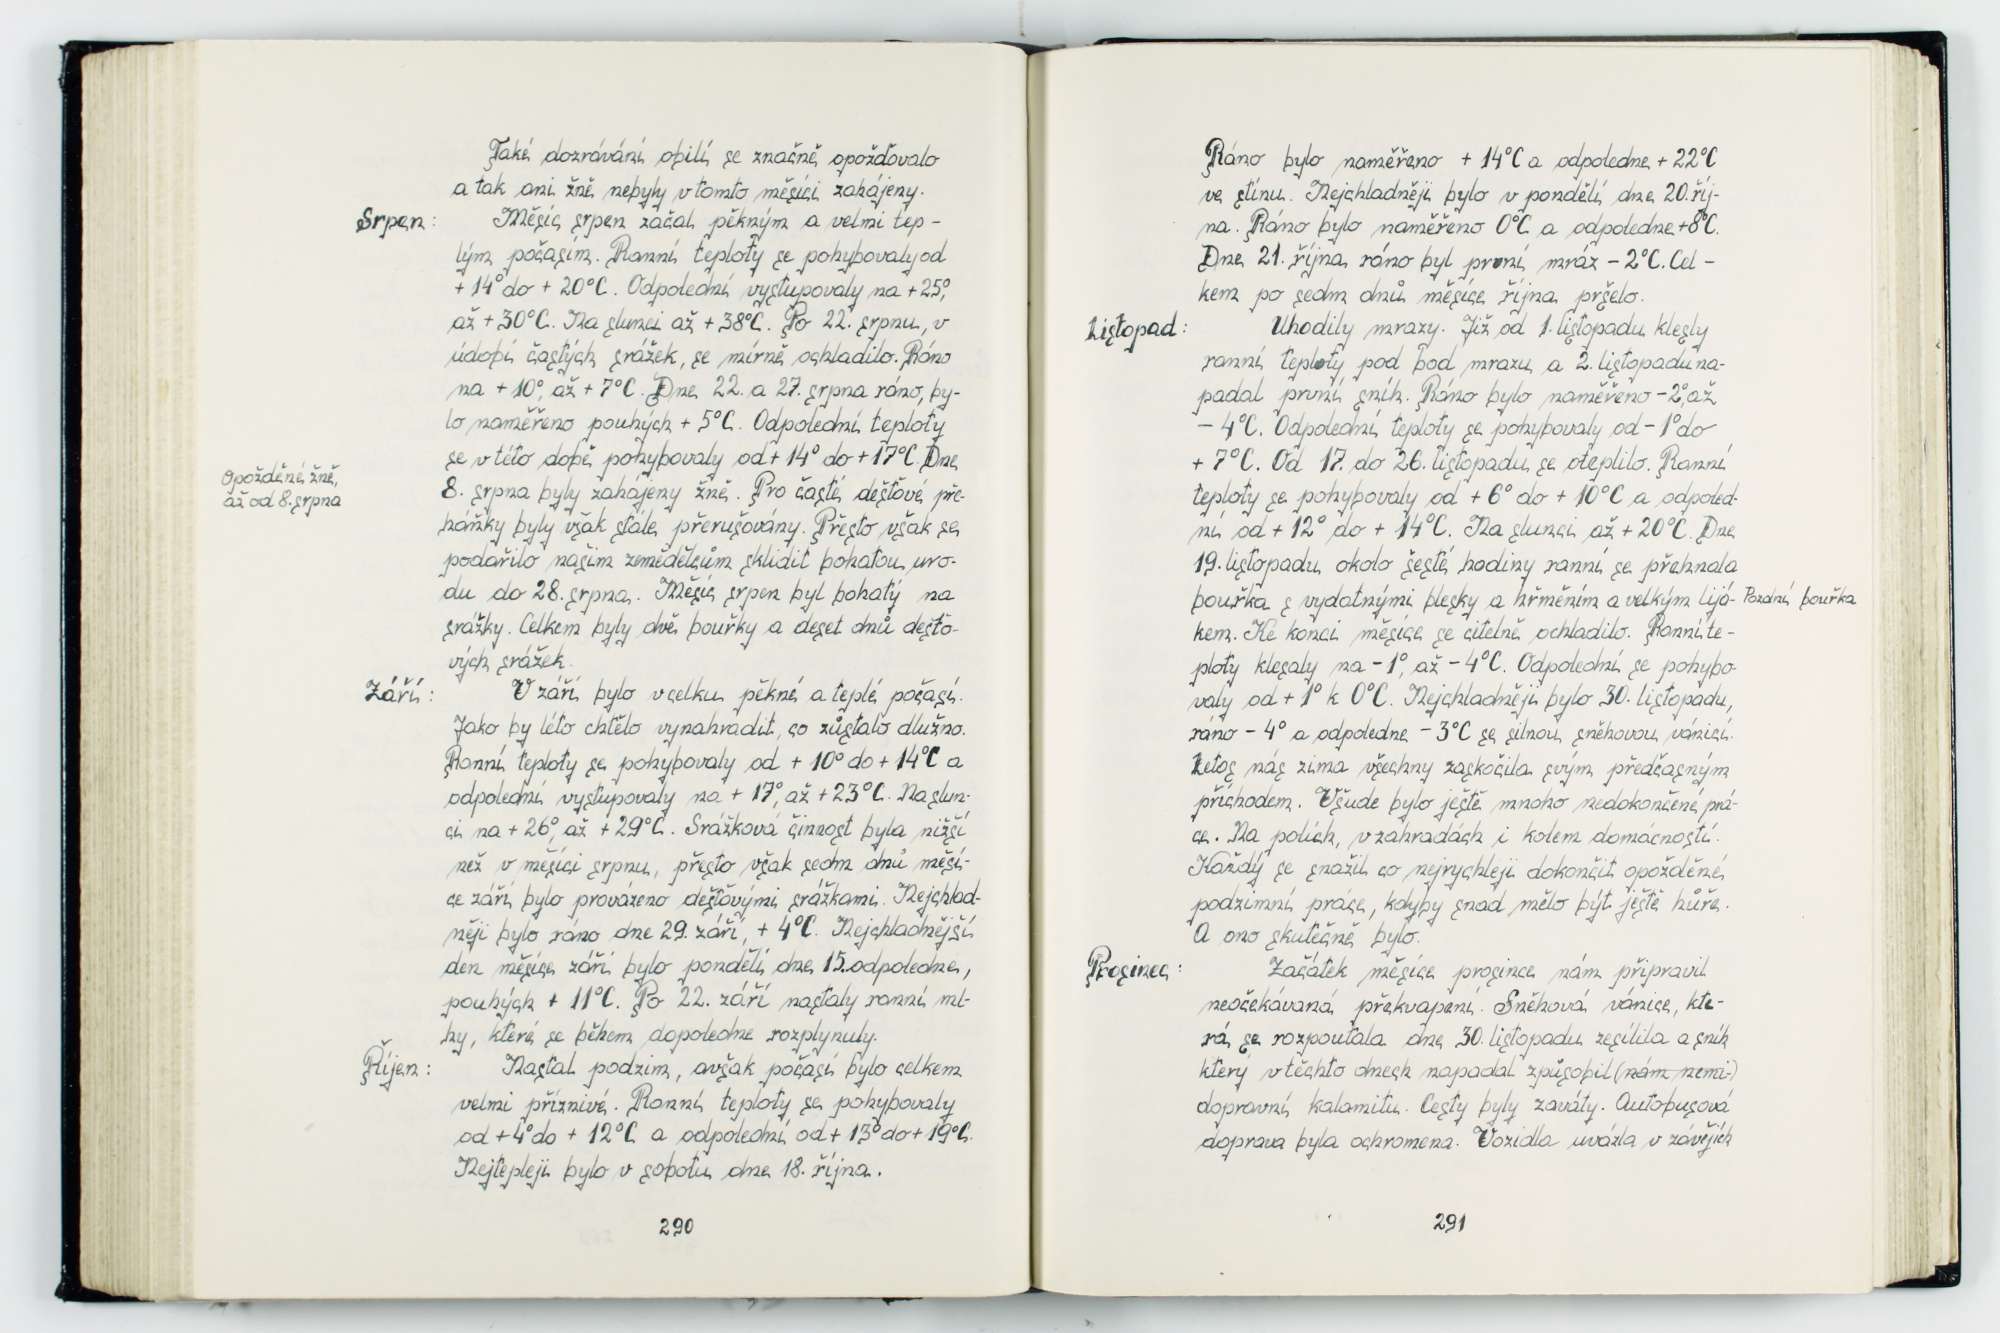 Také dozrávání obilí se značně opožďovalo
a tak ani žně nebyly v tomto měsíci zahájeny.
Srpen: Měsíc srpen začal pěkným a velmi tep-
lým počasím. Ranní teploty se pohybovaly od
+ 14° do + 20°C. Odpolední vystupovaly na + 25°,
až + 30°C. Na slunci až + 38°C. Po 22. srpnu, v
údobí častých srážek, se mírně ochladilo. Ráno
na + 10°, až + 7°C. Dne 22. a 27. srpna ráno, by-
lo naměřeno pouhých + 5°C. Odpolední teploty
se v této době pohybovaly od + 14° do + 17°C. Dne
Opožděné žně,
až od 8. srpna
8. srpna byly zahájeny žně. Pro časté dešťové pře-
háňky byly však stále přerušovány. Přesto však se
podařilo našim zemědělcům sklidit bohatou úro-
du do 28. srpna. Měsíc srpen byl bohatý na
srážky. Celkem byly dvě bouřky a deset dnů dešťo-
vých srážek.
Září: V září bylo vcelku pěkné a teplé počasí.
Jako by léto chtělo vynahradit, co zůstalo dlužno.
Ranní teploty se pohybovaly od + 10° do + 14°C a
odpolední vystupovaly na + 17°, až + 23°C. Na slun-
ci na + 26°, až + 29°C. Srážková činnost byla nižší
než v měsíci srpnu, přesto však sedm dnů měsí-
ce září bylo provázeno dešťovými srážkami. Nejchlad-
něji bylo ráno dne 29. září, + 4°C. Nejchladnější
den měsíce září bylo pondělí dne 15. odpoledne,
pouhých + 11°C. Po 22. září nastaly ranní ml-
hy, které se během dopoledne rozplynuly.
Říjen: Nastal podzim, avšak počasí bylo celkem
velmi příznivé. Ranní teploty se pohybovaly
od + 4° do + 12°C a odpolední od + 13° do + 19°C.
Nejtepleji bylo v sobotu dne 18. října.
290
Ráno bylo naměřeno + 14°C a odpoledne + 22°C
ve stínu. Nejchladněji bylo v pondělí dne 20. říj-
na. Ráno bylo naměřeno 0°C a odpoledne +8°C.
Dne 21. října ráno byl první mráz - 2°C. Cel-
kem po sedm dnů měsíce října pršelo.
Listopad: Uhodily mrazy. Již od 1. listopadu klesly
ranní teploty pod bod mrazu a 2. listopadu na-
padal první sníh. Ráno bylo naměřeno - 2°, až
- 4°C. Odpolední teploty se pohybovaly od - 1° do
+ 7°C. Od 17. do 26. listopadu se oteplilo. Ranní
teploty se pohybovaly od + 6° do + 10°C a odpoled-
ní od + 12° do + 14°C. Na slunci až + 20°C. Dne
19. listopadu okolo šesté hodiny ranní se přehnala
bouřka s vydatnými blesky a hřměním a velkým lijá- Pozdní bouřka
kem. Ke konci měsíce se citelně ochladilo. Ranní te-
ploty klesaly na - 1°, až - 4°C. Odpolední se pohybo-
valy od + 1° k 0°C. Nejchladněji bylo 30. listopadu,
ráno - 4° a odpoledne - 3°C se silnou sněhovou vánicí.
Letos nás zima všechny zaskočila svým předčasným
příchodem. Všude bylo ještě mnoho nedokončené prá-
ce. Na polích, v zahradách i kolem domácností.
Každý se snažil co nejrychleji dokončit opožděné
podzimní práce, kdyby snad mělo být ještě hůře.
A ono skutečně bylo.
Prosinec: Začátek měsíce prosince nám připravil
neočekávaná překvapení. Sněhová vánice, kte-
rá se rozpoutala dne 30. listopadu zesílila a sníh
který v těchto dnech napadal způsobil (nám nemi-)
dopravní kalamitu. Cesty byly zaváty. Autobusová
doprava byla ochromena. Vozidla uvázla v závějích
291